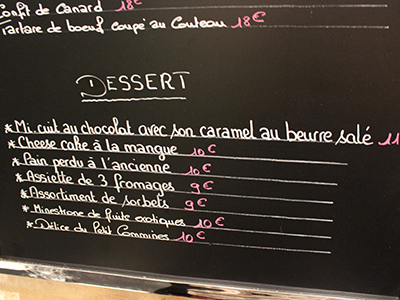 Confit de Canard 18€
Tartare de boeuf coupé au Couteau 18€
DESSERT
*Mi cuit au chocolat avec son caramel au beurre salé 11
*Cheese cake à la mangue 10€
*Pain perdu à l'ancienne 10€
*Assiette de 3 fromages 9€
*Assortiment de sorbets 9€
*Minestrone de fruits exotiques 10€
*Délice du Petit Commines 10€